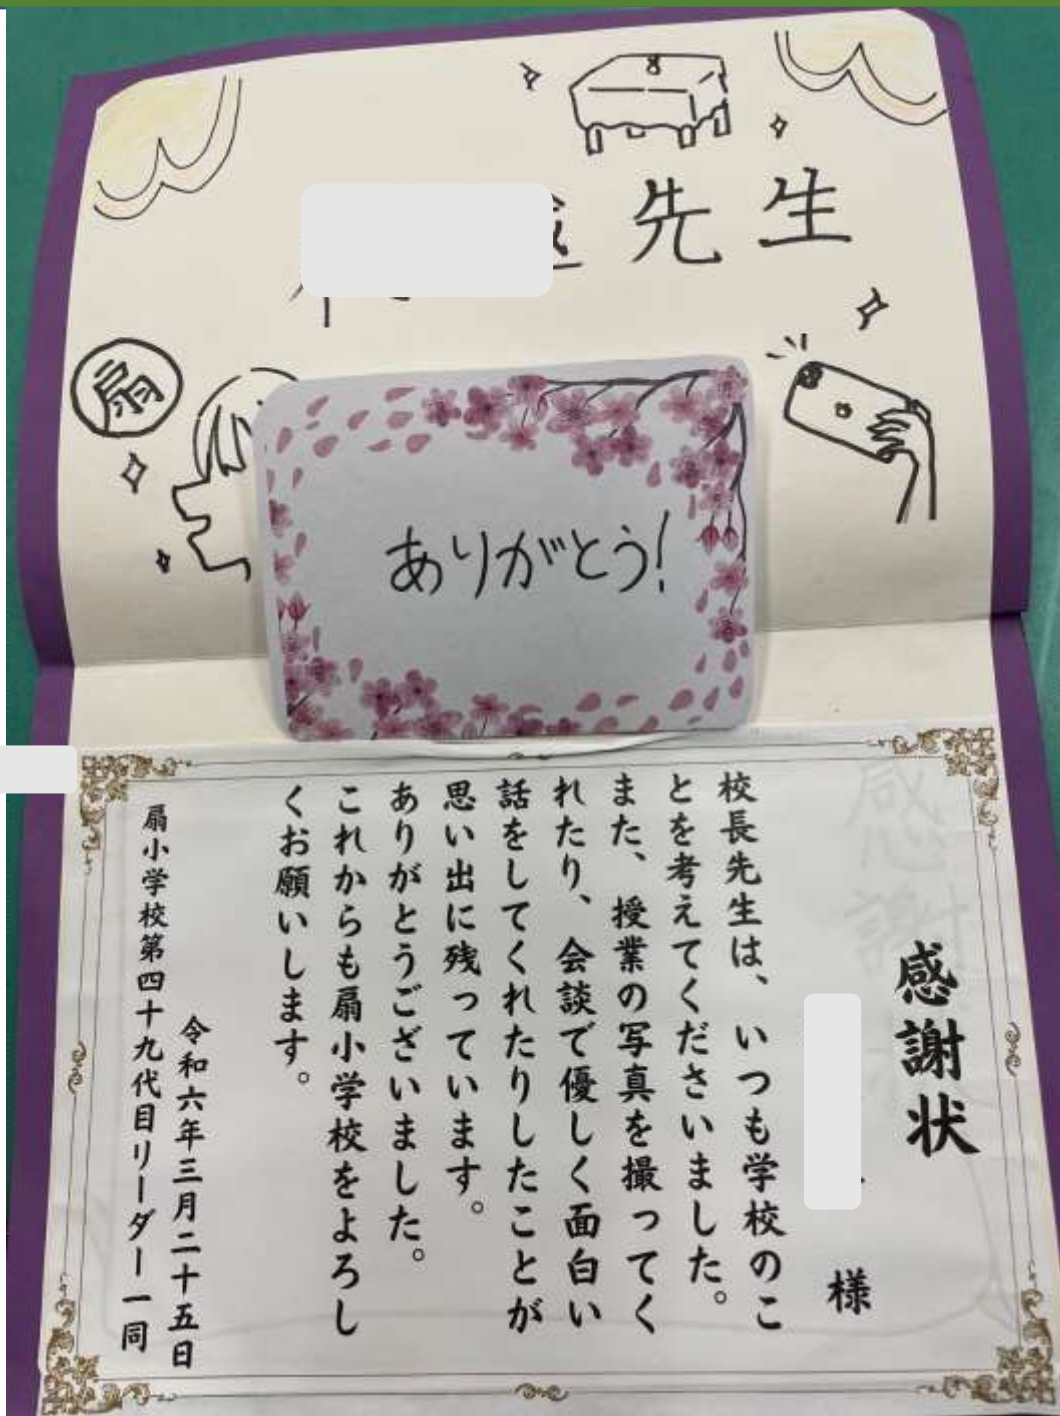 先生
扇
ありがとう!
感謝状
様
校長先生は、いつも学校のこ
とを考えてくださいました。
また、授業の写真を撮ってく
れたり、会談で優しく面白い
話をしてくれたりしたことが
思い出に残っています。
ありがとうございました。
これからも扇小学校をよろし
くお願いします。
令和六年三月二十五日
扇小学校第四十九代目リーダー一同